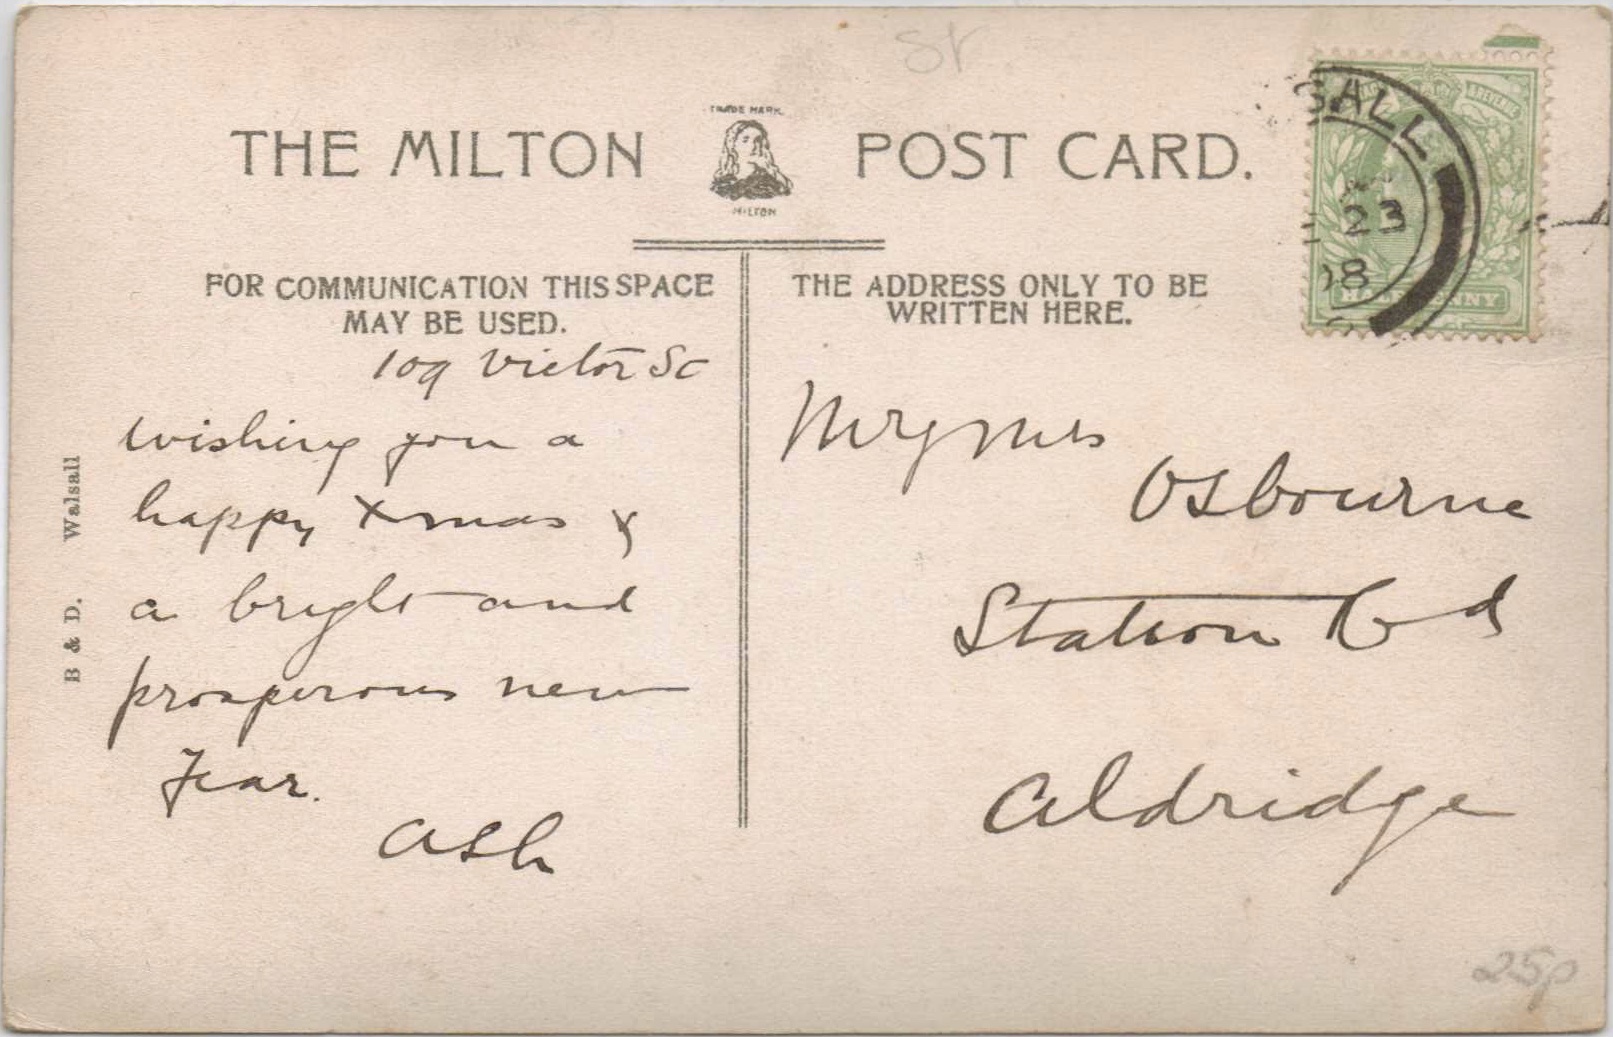 St
TRADE MARK.
THE MILTON POST CARD.
MILTON
SALL
23
08
HALFPENNY
FOR COMMUNICATION THIS SPACE
MAY BE USED.
THE ADDRESS ONLY TO BE
WRITTEN HERE.
109 Victor St
wishing you a
happy Xmas &
a bright and
prosperous new
Year.
ASh
Mr & Mrs
Osbourne
Station Rd
Aldridge
B & D. Walsall
25p